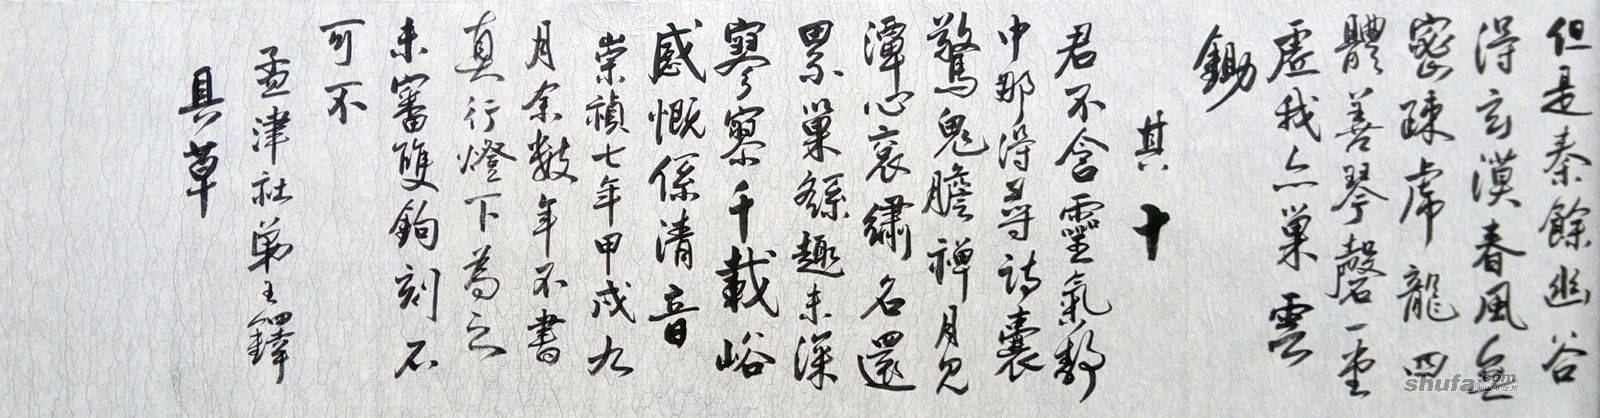 但是秦餘幽谷
得玄漠春風無
密疎虎龍四
體善琴磬一壺
虛我亦巢雲
鋤
其十
君不含靈氣靜
中那得尋詩囊
驚鬼膽禪月見
潭心裘繡名還
累巢繇趣未深
寥寥寥千載峪
感慨係清音
崇禎七年甲戌九
月余數年不書
真行燈下為之
未審雙鉤刻石
可不
孟津社弟王鐸
具草
shufa.com